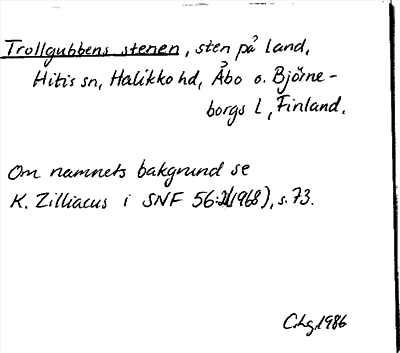 Trollgubbens stenen, sten på land,
Hitis sn, Halikko hd, Åbo o. Björne-
borgs l, Finland.
Om namnets bakgrund se
K. Zilliacus i SNF 56:2(1968), s. 73.
C.hg.1986